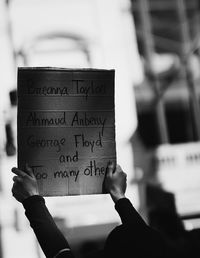 Breanna Taylor
Ahmaud Arbery
George Floyd
and
Too many others